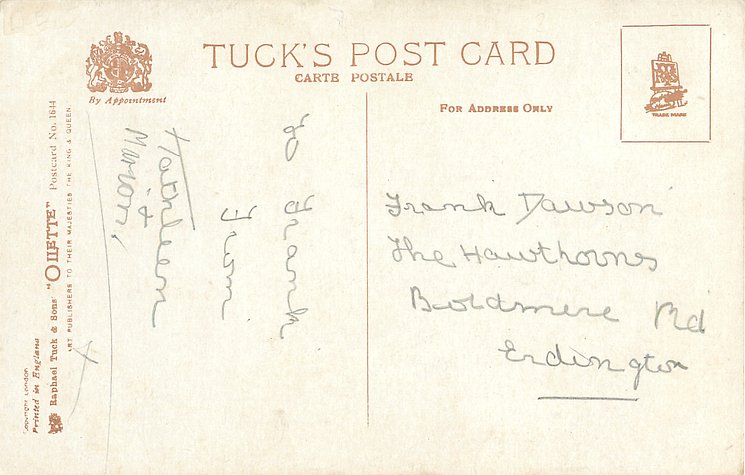 TUCK'S POST CARD
CARTE POSTALE
By Appointment
FOR ADDRESS ONLY
TRADE MARK
To Frank
From
Kathleen
+
Marion,
Frank Dawson
The Hawthorns
Boldmere Rd
Erdington
ART PUBLISHERS TO THEIR MAJESTIES THE KING & QUEEN.
Raphael Tuck & Sons' "OILETTE" Postcard No. 1644
Printed in England
Copyright London